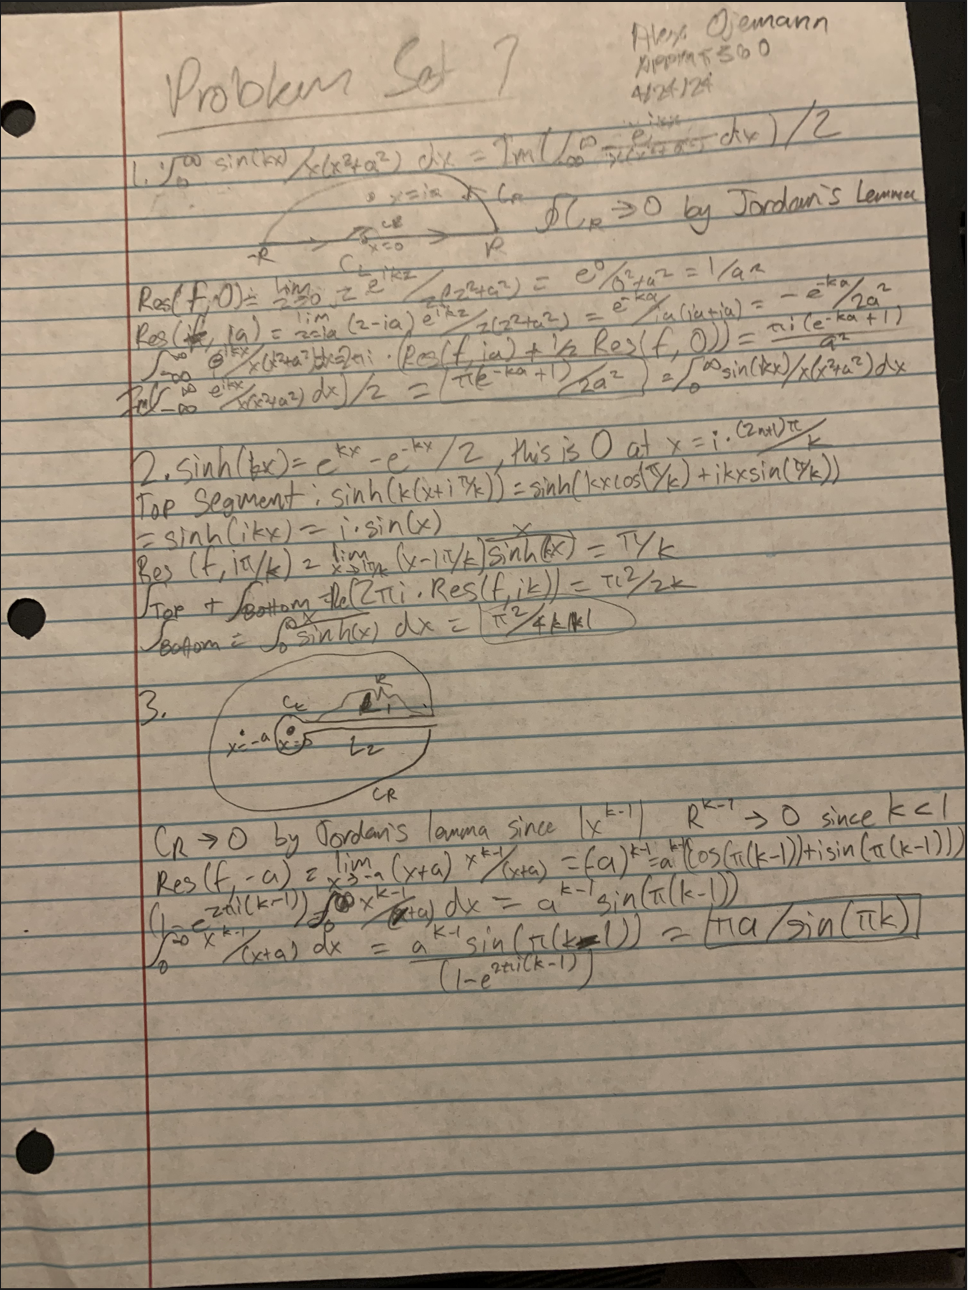 Problem Set 7
Alex Ojemann
4/24/24
1. ∫₀^∞ sin(kx)/x(x²+a²) dx = Im(∫₋∞^∞ e^{ikx}/x(x²+a²) dx)/2
x=ia C_R
C_ε x=0
-R R
∮C_R → 0 by Jordan's Lemma
Res(f,0) = lim z→0 z e^{ikz}/z(z²+a²) = e⁰/0²+a² = 1/a²
Res(f, ia) = lim z→ia (z-ia) e^{ikz}/z(z²+a²) = e^{-ka}/ia(ia+ia) = -e^{-ka}/2a²
∫₋∞^∞ e^{ikx}/x(x²+a²)dx=2πi·(Res(f,ia) + 1/2 Res(f,0)) = πi(e^{-ka}+1)/a²
Im(∫₋∞^∞ e^{ikx}/x(x²+a²) dx)/2 = π(e^{-ka}+1)/2a² = ∫₀^∞ sin(kx)/x(x²+a²)dx
2. sinh(kx) = e^{kx} - e^{-kx}/2, this is 0 at x = i·(2n+1)π/k
Top Segment: sinh(k(x+iπ/k)) = sinh(kxcos(π/k) + ikxsin(π/k))
= sinh(ikx) = i·sin(x)
Res(f, iπ/k) = lim x→iπ/k (x-iπ/k) x/sinh(kx) = π/k
∫Top + ∫Bottom = Re(2πi·Res(f,ik)) = π²/2k
∫Bottom = ∫₀^∞ x/sinh(x) dx = π²/4k|k|
3.
C_ε R
x=-a x=0 L₂
C_R
C_R → 0 by Jordan's lemma since |x^{k-1}| R^{k-1} → 0 since k<1
Res(f,-a) = lim x→-a (x+a) x^{k-1}/(x+a) = (-a)^{k-1} = a^{k-1}(cos(π(k-1))+isin(π(k-1)))
(1-e^{2πi(k-1)}) ∫₀^∞ x^{k-1}/(x+a) dx = a^{k-1} sin(π(k-1))
∫₀^∞ x^{k-1}/(x+a) dx = a^{k-1} sin(π(k-1))/(1-e^{2πi(k-1)}) = πa/sin(πk)